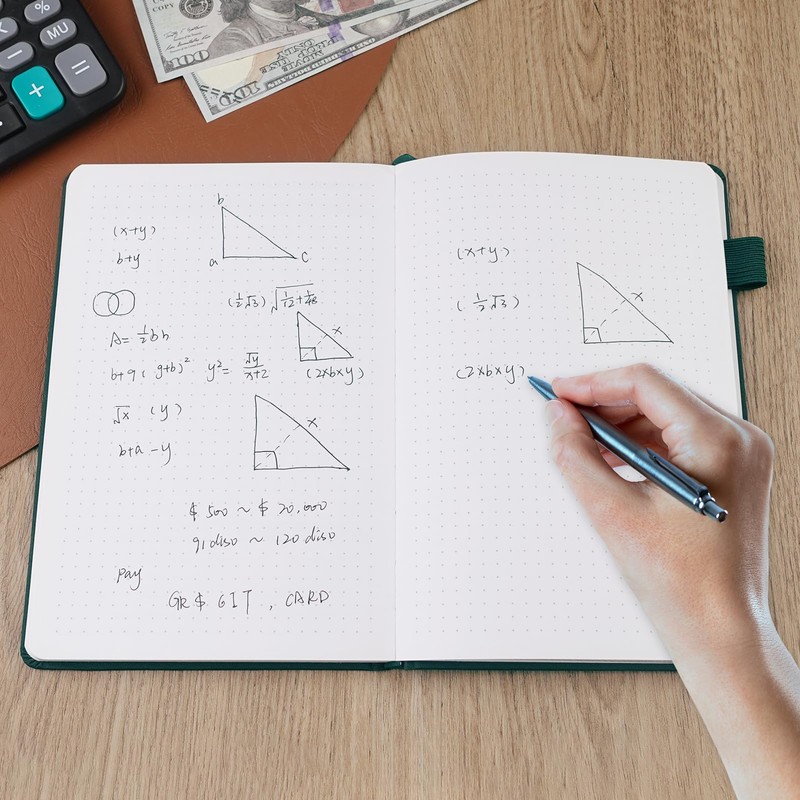 %
MU
−
+
=
COPY
100
100
b
(x+y)
b+y
a
c
(½√3) √
A= ½bh
x
b+9( g+b)² y²= √y/x+2 (2xbxy)
√x (y)
x
b+a -y
$ 500 ~ $ 20,000
91 diso ~ 120 diso
Pay
GR$ GIT , CARD
(x+y)
x
(½√3)
(2xbxy)